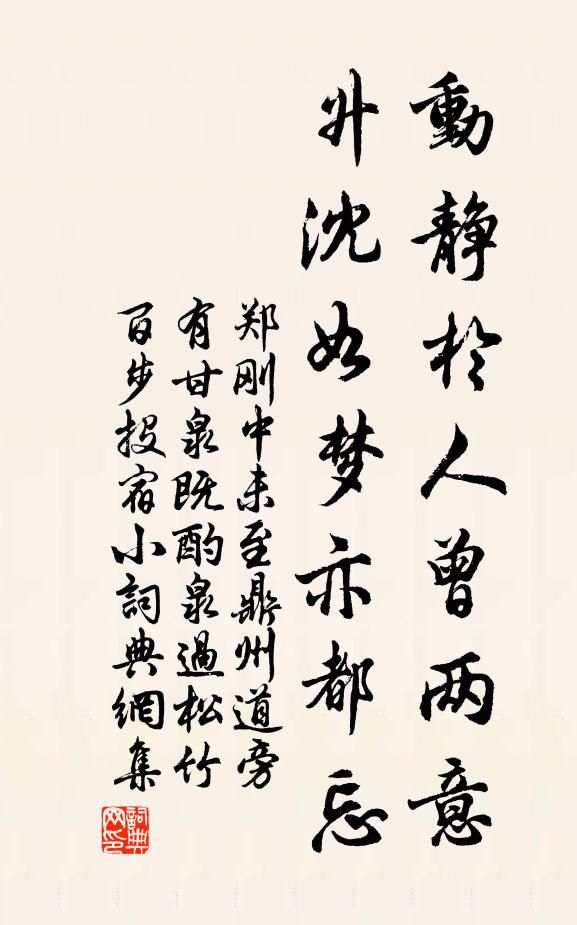 動静於人曾两意
升沈如梦亦都忘
郑刚中未至鼎州道旁
有甘泉既酌泉過松竹
百步投宿小詞典網集
詞典网印